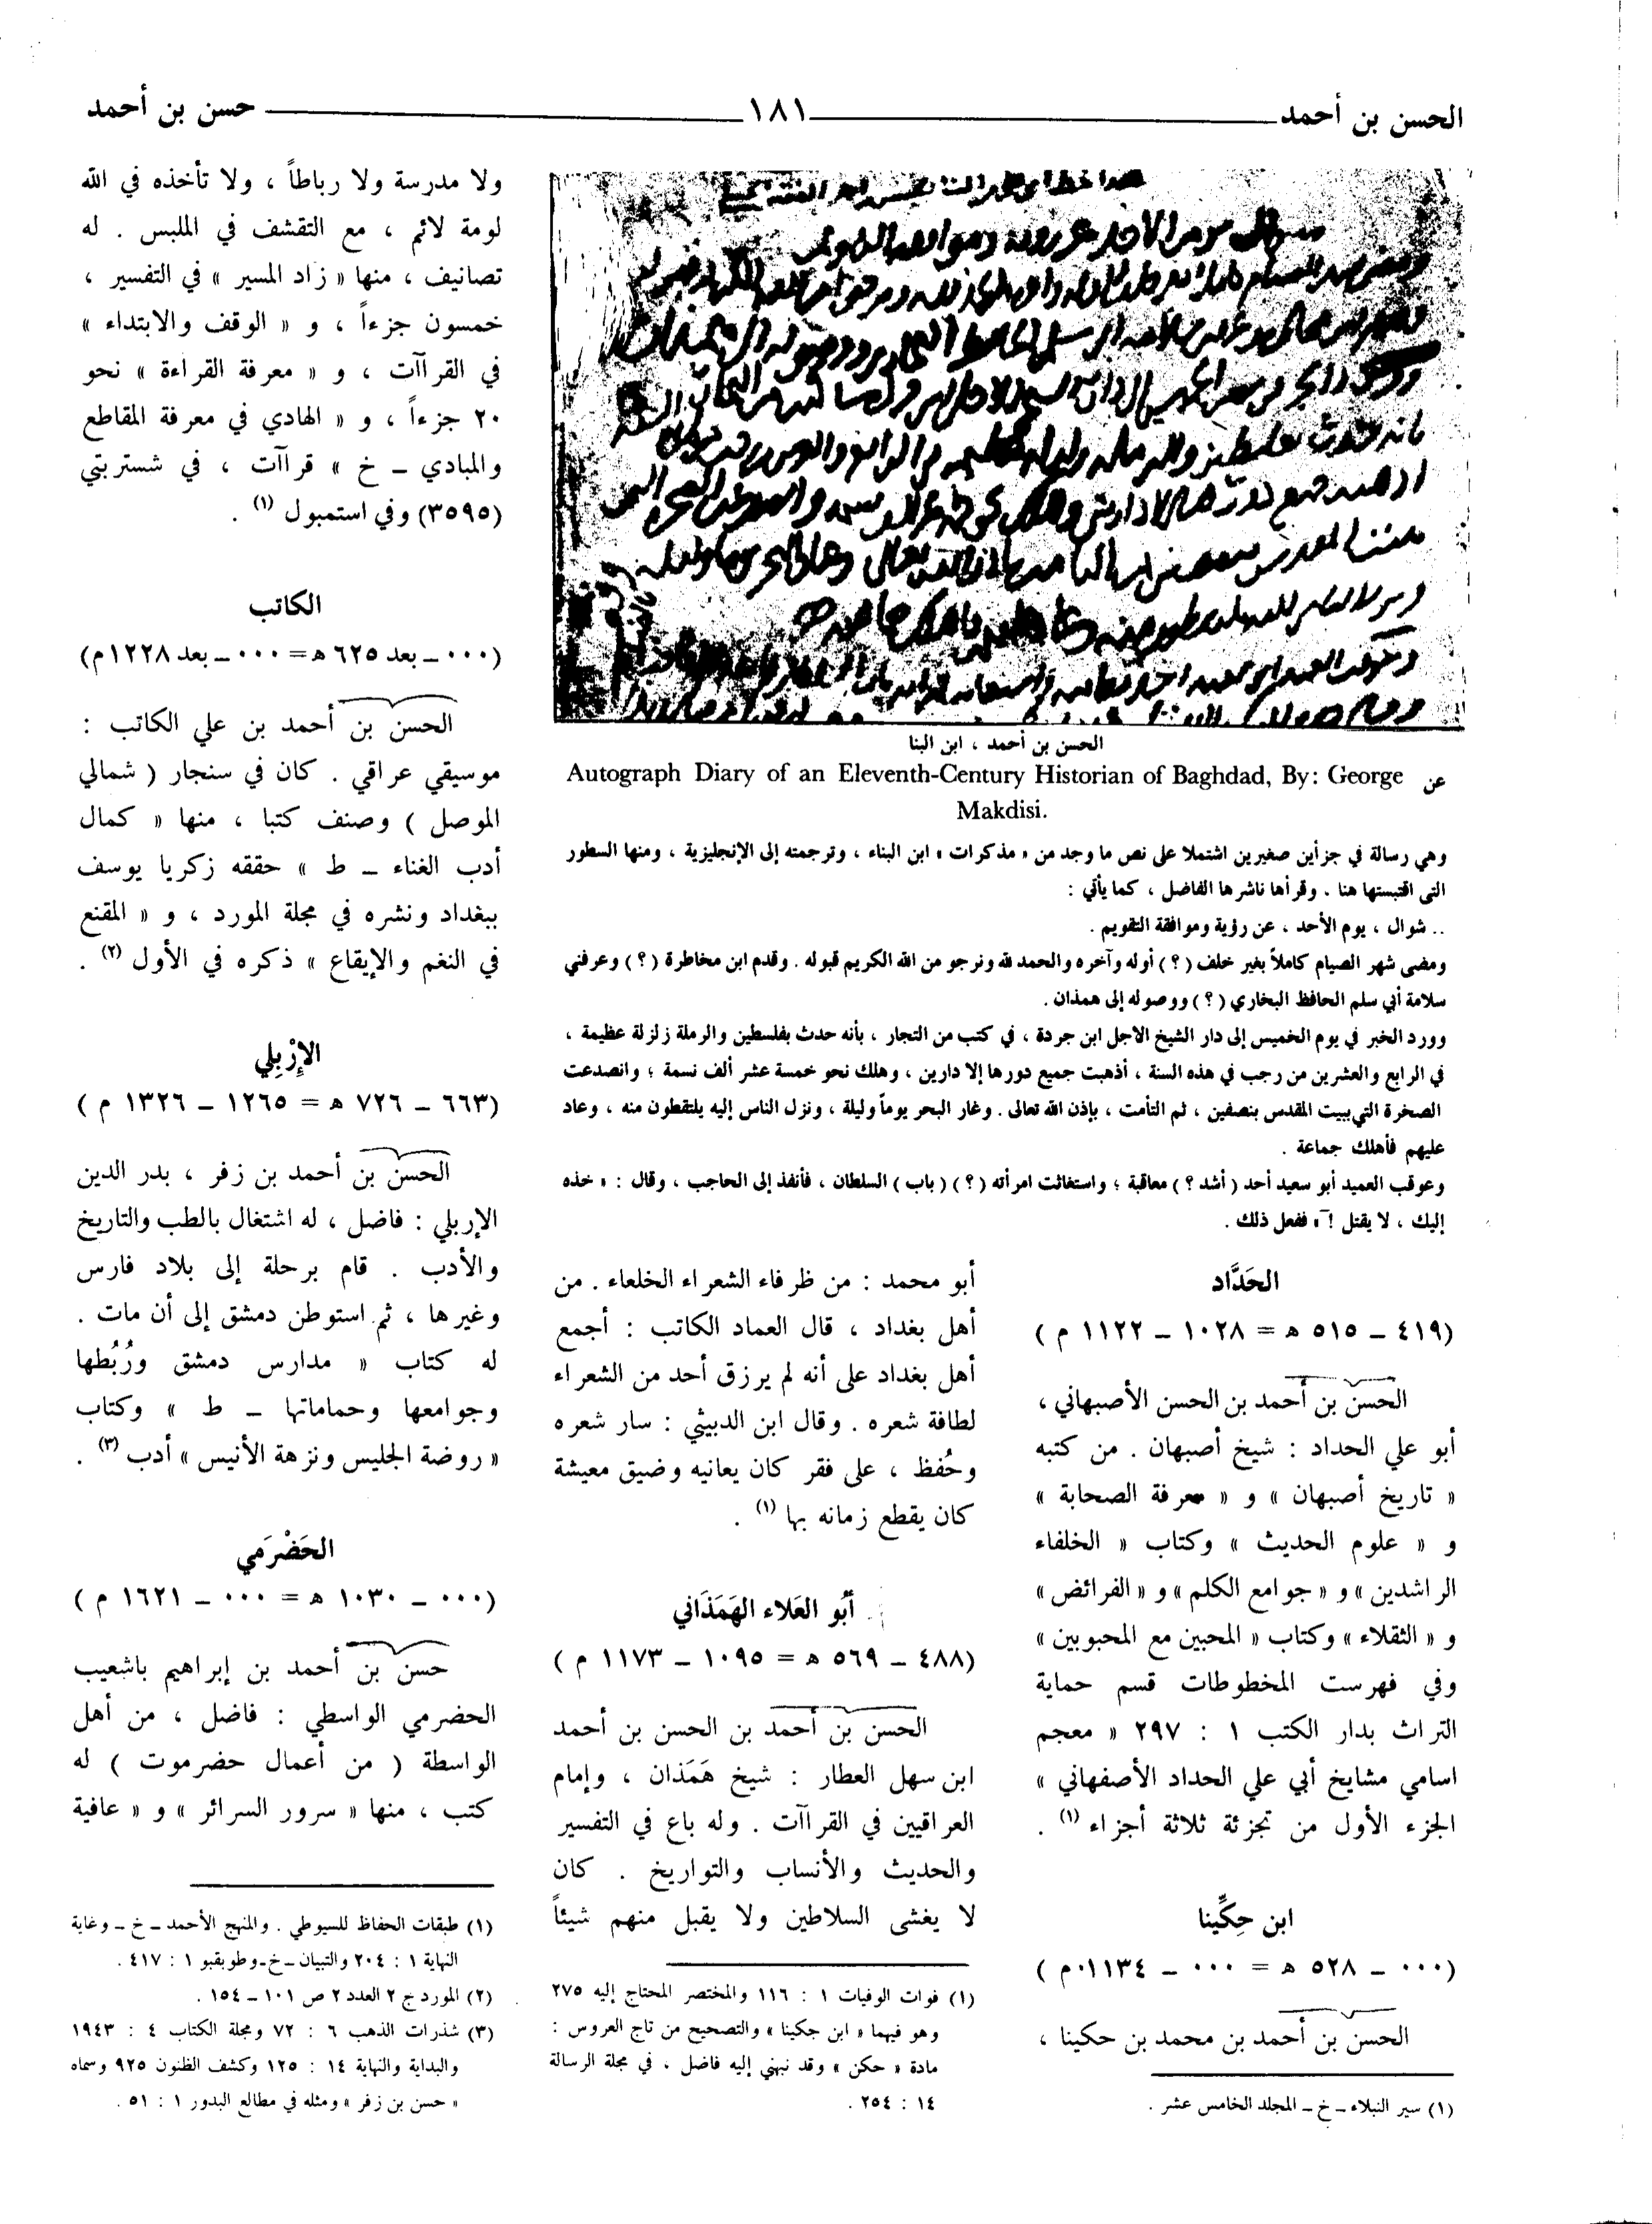 الحسن بن أحمد
١٨١
حسن بن أحمد
الحسن بن أحمد ، ابن البنا
عن Autograph Diary of an Eleventh-Century Historian of Baghdad, By: George
Makdisi.
وهي رسالة في جزأين صغيرين اشتملا على نص ما وجد من « مذكرات » ابن البناء ، وترجمته إلى الإنجليزية ، ومنها السطور
التي اقتبستها هنا . وقرأها ناشرها الفاضل ، كما يأتي :
.. شوال ، يوم الأحد ، عن رؤية وموافقة التقويم .
ومضى شهر الصيام كاملاً بغير خلف ( ؟ ) أوله وآخره والحمد لله ونرجو من الله الكريم قبوله . وقدم ابن مخاطرة ( ؟ ) وعرفني
سلامة أبي سلم الحافظ البخاري ( ؟ ) ووصوله إلى همذان .
وورد الخبر في يوم الخميس إلى دار الشيخ الأجل ابن جردة ، في كتب من التجار ، بأنه حدث بفلسطين والرملة زلزلة عظيمة ،
في الرابع والعشرين من رجب في هذه السنة ، أذهبت جميع دورها إلا دارين ، وهلك نحو خمسة عشر ألف نسمة ؛ وانصدعت
الصخرة التي ببيت المقدس بنصفين ، ثم التأمت ، بإذن الله تعالى . وغار البحر يوماً وليلة ، ونزل الناس إليه يلتقطون منه ، وعاد
عليهم فأهلك جماعة .
وعوقب العميد أبو سعيد أحد ( أشد ؟ ) معاقبة ؛ واستغاثت امرأته ( ؟ ) ( باب ) السلطان ، فأنفذ إلى الحاجب ، وقال : « خذه
إليك ، لا يقتل ! » ففعل ذلك .
الحَدَّاد
(٤١٩ – ٥١٥ ه = ١٠٢٨ – ١١٢٢ م )
الحسن بن أحمد بن الحسن الأصبهاني ،
أبو علي الحداد : شيخ أصبهان . من كتبه
« تاريخ أصبهان » و « معرفة الصحابة »
و « علوم الحديث » وكتاب « الخلفاء
الراشدين » و « جوامع الكلم » و « الفرائض »
و « الثقلاء » وكتاب « المحبين مع المحبوبين »
وفي فهرست المخطوطات قسم حماية
التراث بدار الكتب ١ : ٢٩٧ « معجم
اسامي مشايخ أبي علي الحداد الأصفهاني »
الجزء الأول من تجزئة ثلاثة أجزاء (١) .
ابن حِكِّينا
(٠٠٠ – ٥٢٨ ه = ٠٠٠ – ١١٣٤ م )
الحسن بن أحمد بن محمد بن حكينا ،
(١) سير النبلاء – خ – المجلد الخامس عشر .
أبو محمد : من ظرفاء الشعراء الخلعاء . من
أهل بغداد ، قال العماد الكاتب : أجمع
أهل بغداد على أنه لم يرزق أحد من الشعراء
لطافة شعره . وقال ابن الدبيثي : سار شعره
وحُفظ ، على فقر كان يعانيه وضيق معيشة
كان يقطع زمانه بها (١) .
أبُو العَلاء الهَمَذَاني
(٤٨٨ – ٥٦٩ ه = ١٠٩٥ – ١١٧٣ م )
الحسن بن أحمد بن الحسن بن أحمد
ابن سهل العطار : شيخ هَمَذان ، وإمام
العراقيين في القراآت . وله باع في التفسير
والحديث والأنساب والتواريخ . كان
لا يغشى السلاطين ولا يقبل منهم شيئاً
(١) فوات الوفيات ١ : ١١٦ والمختصر المحتاج إليه ٢٧٥
وهو فيهما « ابن جكينا » والتصحيح من تاج العروس :
مادة « حكن » وقد نبهني إليه فاضل ، في مجلة الرسالة
١٤ : ٢٥٤ .
ولا مدرسة ولا رباطاً ، ولا تأخذه في الله
لومة لائم ، مع التقشف في الملبس . له
تصانيف ، منها « زاد المسير » في التفسير ،
خمسون جزءاً ، و « الوقف والابتداء »
في القراآت ، و « معرفة القراءة » نحو
٢٠ جزءاً ، و « الهادي في معرفة المقاطع
والمبادي – خ » قراآت ، في شستربتي
(٣٥٩٥) وفي استمبول (١) .
الكاتب
(٠٠٠ – بعد ٦٢٥ ه = ٠٠٠ – بعد ١٢٢٨ م)
الحسن بن أحمد بن علي الكاتب :
موسيقي عراقي . كان في سنجار ( شمالي
الموصل ) وصنف كتبا ، منها « كمال
أدب الغناء – ط » حققه زكريا يوسف
ببغداد ونشره في مجلة المورد ، و « المقنع
في النغم والإيقاع » ذكره في الأول (٢) .
الإِرْبِلي
(٦٦٣ – ٧٢٦ ه = ١٢٦٥ – ١٣٢٦ م )
الحسن بن أحمد بن زفر ، بدر الدين
الإربلي : فاضل ، له اشتغال بالطب والتاريخ
والأدب . قام برحلة إلى بلاد فارس
وغيرها ، ثم استوطن دمشق إلى أن مات .
له كتاب « مدارس دمشق ورُبُطها
وجوامعها وحماماتها – ط » وكتاب
« روضة الجليس ونزهة الأنيس » أدب (٣) .
الحَضْرَمي
(٠٠٠ – ١٠٣٠ ه = ٠٠٠ – ١٦٢١ م )
حسن بن أحمد بن إبراهيم باشعيب
الحضرمي الواسطي : فاضل ، من أهل
الواسطة ( من أعمال حضرموت ) له
كتب ، منها « سرور السرائر » و « عافية
(١) طبقات الحفاظ للسيوطي . والمنهج الأحمد – خ – وغاية
النهاية ١ : ٢٠٤ والتبيان – خ – وطوبقبو ١ : ٤١٧ .
(٢) المورد ج ٢ العدد ٢ ص ١٠١ – ١٥٤ .
(٣) شذرات الذهب ٦ : ٧٢ ومجلة الكتاب ٤ : ١٩٤٣
والبداية والنهاية ١٤ : ١٢٥ وكشف الظنون ٩٢٥ وسماه
« حسن بن زفر » ومثله في مطالع البدور ١ : ٥١ .